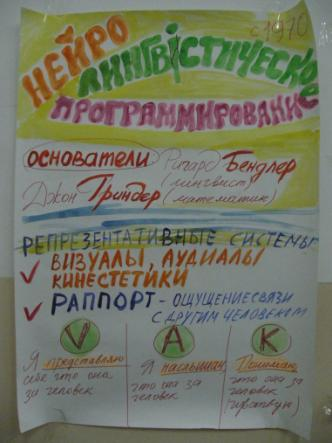 с 1970
НЕЙРО
ЛИНГВiСТИЧЕСКОЕ
ПРОГРАММИРОВАНИЕ
ОСНОВАТЕЛИ Ричард Бендлер
(лингвист)
Джон Гриндер (математик)
РЕПРЕЗЕНТАТИВНЫЕ СИСТЕМЫ
✓ ВИЗУАЛЫ, АУДИАЛЫ
КИНЕСТЕТИКИ
✓ РАППОРТ - ОЩУЩЕНИЕ СВЯЗИ
С ДРУГИМ ЧЕЛОВЕКОМ
V
Я представляю
себе что она
за человек
А
Я наслышан,
что она за
человек
К
Понимаю
что она за
человек
(чувствую)